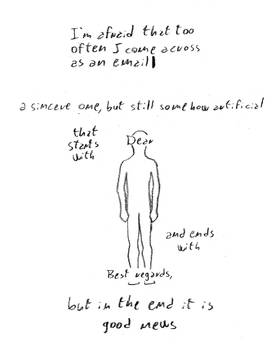 I'm afraid that too
often I come across
as an email
a sincere one, but still somehow artificial
that
starts
with
Dear
and ends
with
Best regards,
but in the end it is
good news